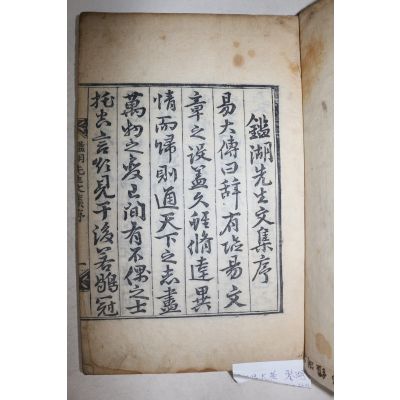 鑑湖先生文集序
易大傳曰辭有險易文
章之設盖久雖脩達異
情而歸則通天下之志盡
萬物之變已間有不偶之士
托言見于後若鶡冠
鑑湖先生文集序